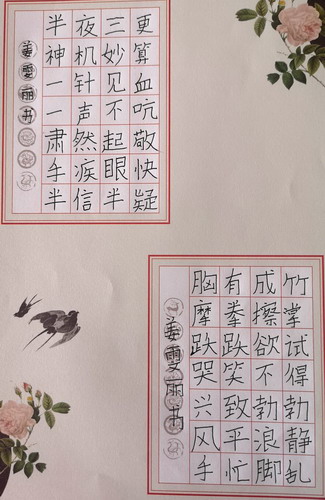 半夜三更
神机妙算
一针见血
一声不吭
肃然起敬
手疾眼快
半信半疑
姜雯丽书
胸有成竹
摩拳擦掌
跃跃欲试
哭笑不得
兴致勃勃
风平浪静
手忙脚乱
姜雯丽书